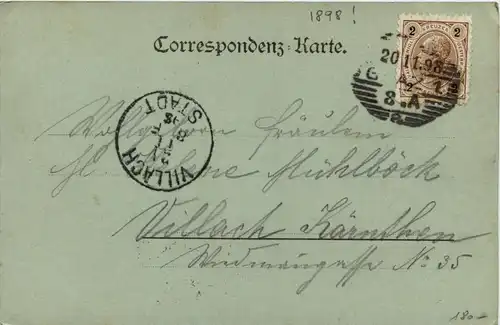 1898!
Correspondenz-Karte.
2 2
20.11.98
8.A
VILLACH
STADT
Wohlgeboren Fräulein
Mühlböck
Villach Kärnthen
Wiedmanngasse No 35
180-